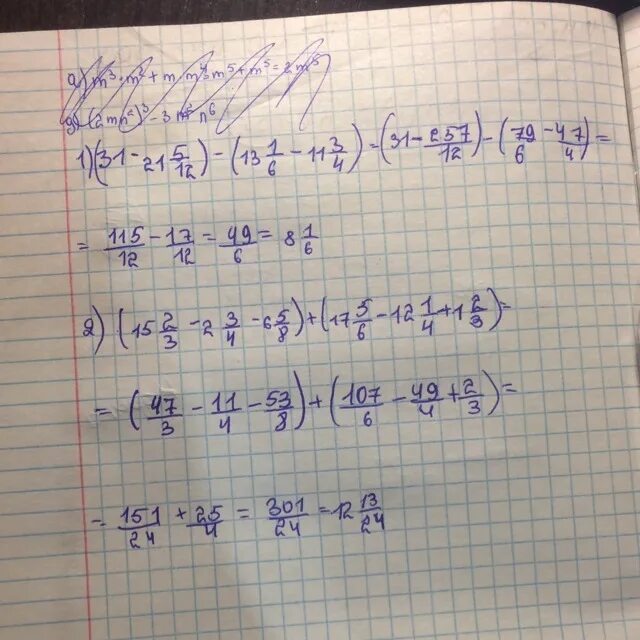 а) m³·m² + m·m⁴ = m⁵ + m⁵ = 2m⁵
(2mn²)³ - 3m n⁶
1) (31 - 21 5/12) - (13 1/6 - 11 3/4) = (31 - 257/12) - (79/6 - 47/4) =
= 115/12 - 17/12 = 49/6 = 8 1/6
2) (15 2/3 - 2 3/4 - 6 5/8) + (17 5/6 - 12 1/4 + 1 2/3) =
= (47/3 - 11/4 - 53/8) + (107/6 - 49/4 + 2/3) =
= 151/24 + 25/4 = 301/24 = 12 13/24